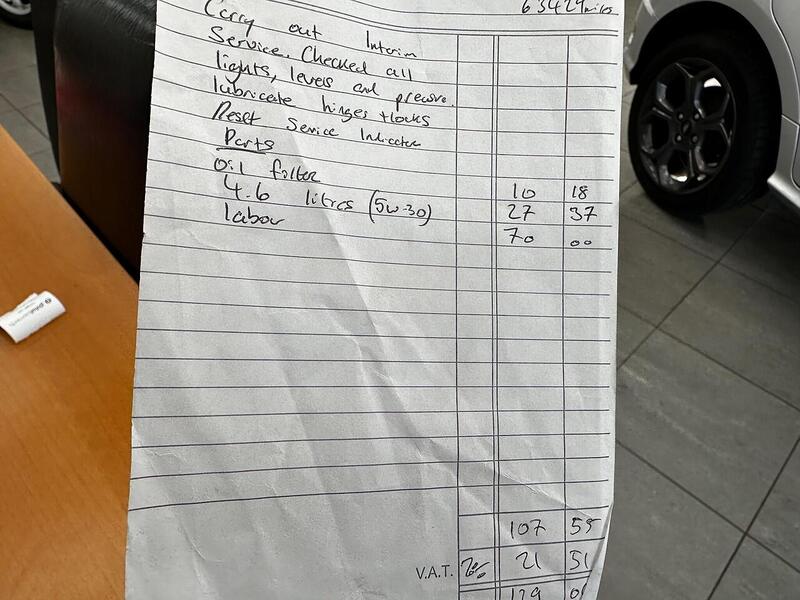 63429 miles
Carry out Interim
Service. Checked all
lights, levels and pressure.
lubricate hinges + locks
Reset Service Indicator
Parts
Oil filter 10 18
4.6 litres (5w-30) 27 37
labour 70 00
107 55
V.A.T. 20% 21 51
129